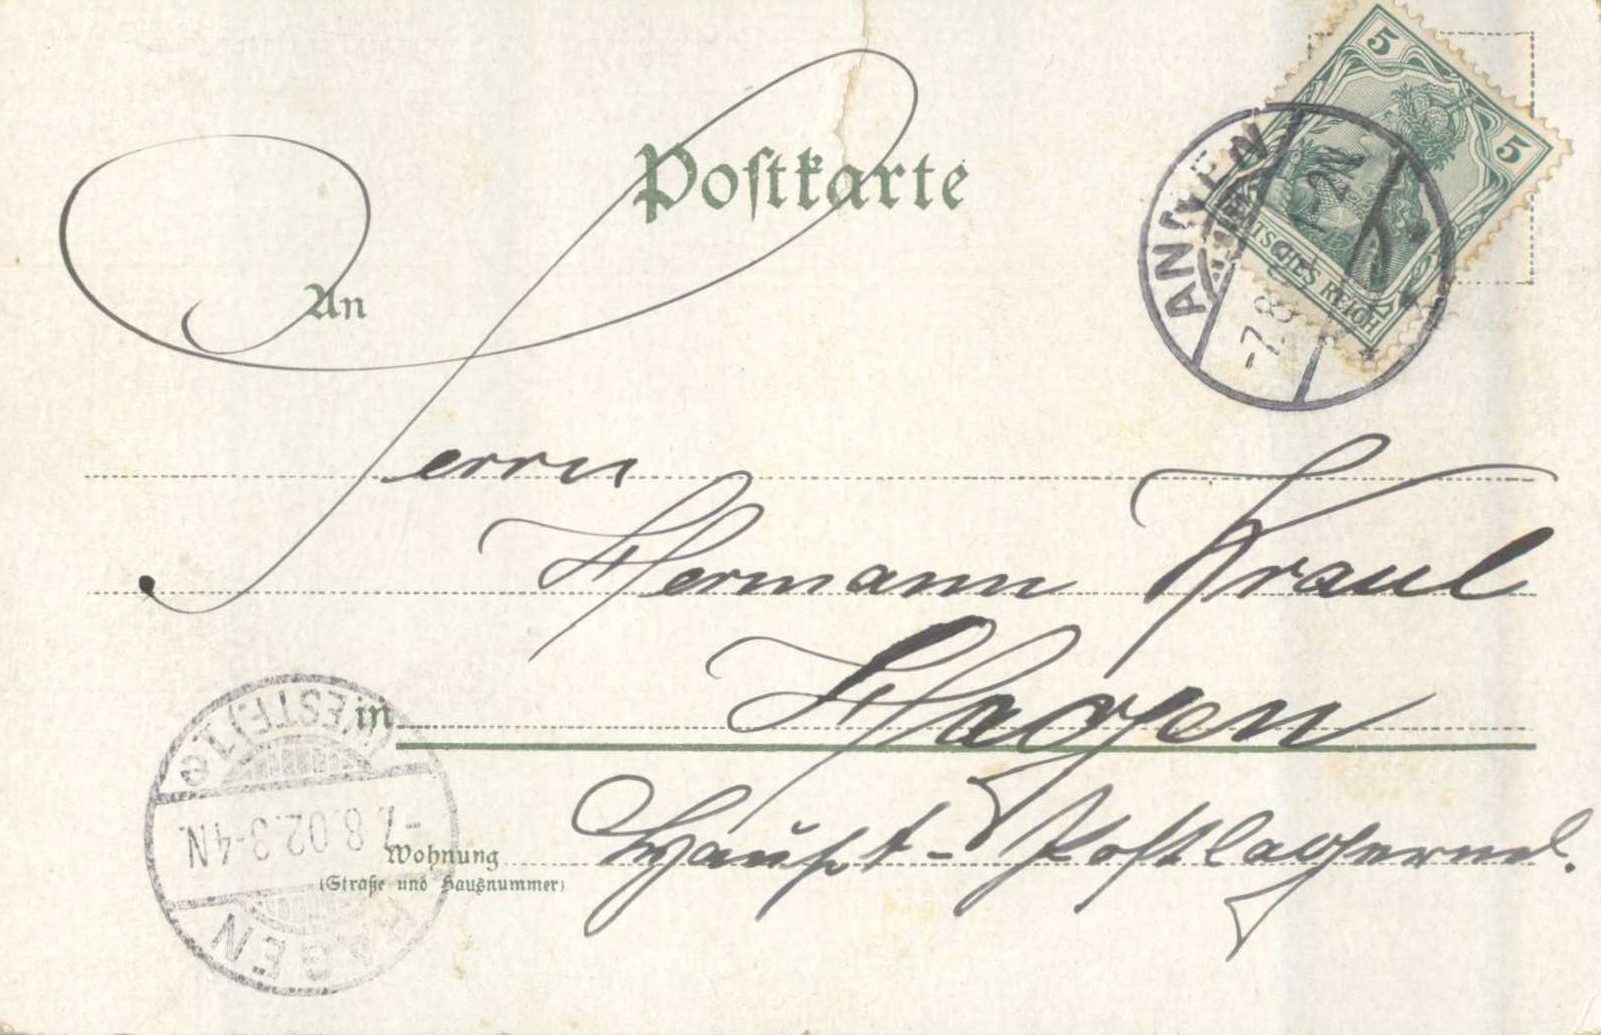 Postkarte
5
5
DEUTSCHES REICH
ANNEN
-7.8
An
Herrn
Hermann Kraul
in Hagen
Wohnung Haupt-Postlagernd.
(Straße und Hausnummer)
HAGEN
-7.8.02.3-4N.
(WESTF.)1e